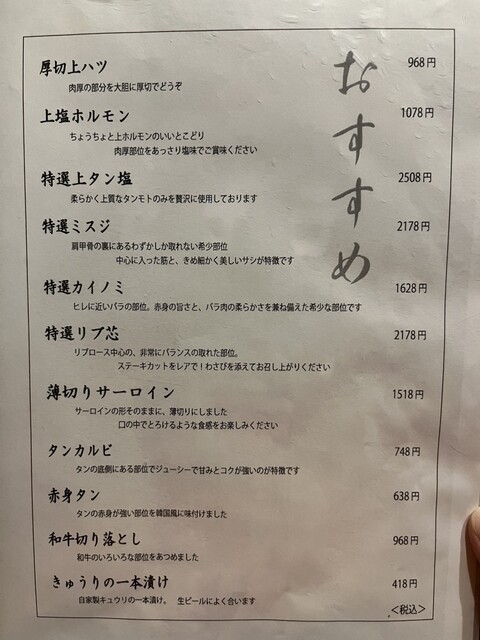 おすすめ
厚切上ハツ 968円
肉厚の部分を大胆に厚切でどうぞ
上塩ホルモン 1078円
ちょうちょと上ホルモンのいいとこどり
肉厚部位をあっさり塩味でご賞味ください
特選上タン塩 2508円
柔らかく上質なタンモトのみを贅沢に使用しております
特選ミスジ 2178円
肩甲骨の裏にあるわずかしか取れない希少部位
中心に入った筋と、きめ細かく美しいサシが特徴です
特選カイノミ 1628円
ヒレに近いバラの部位。赤身の旨さと、バラ肉の柔らかさを兼ね備えた希少な部位です
特選リブ芯 2178円
リブロース中心の、非常にバランスの取れた部位。
ステーキカットをレアで！わさびを添えてお召し上がりください
薄切りサーロイン 1518円
サーロインの形そのままに、薄切りにしました
口の中でとろけるような食感をお楽しみください
タンカルビ 748円
タンの底側にある部位でジューシーで甘みとコクが強いのが特徴です
赤身タン 638円
タンの赤身が強い部位を韓国風に味付けました
和牛切り落とし 968円
和牛のいろいろな部位をあつめました
きゅうりの一本漬け 418円
自家製キュウリの一本漬け。 生ビールによく合います
＜税込＞